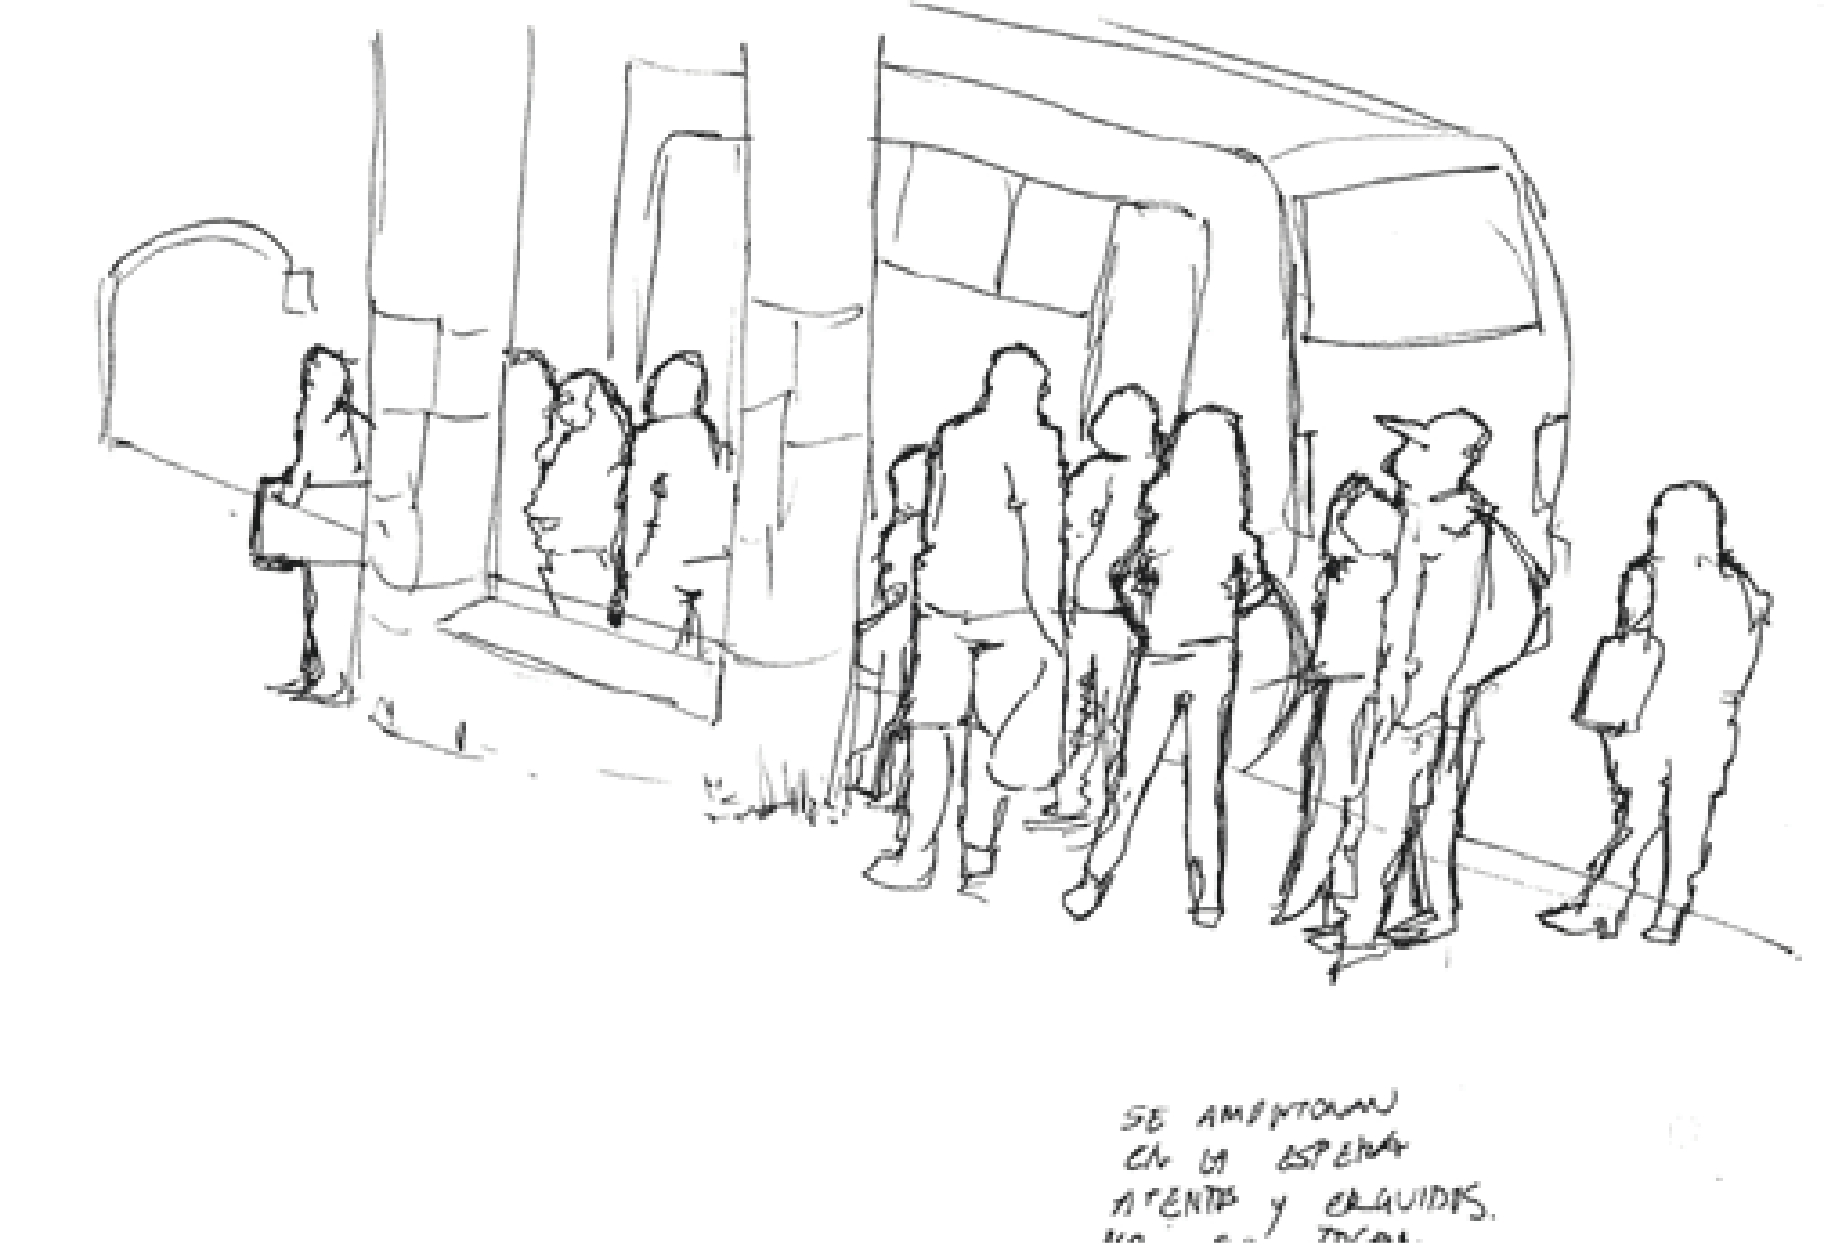 SE AMONTONAN
EN LA ESPERA
ATENTOS y ERGUIDOS.
NO SE TOCAN.